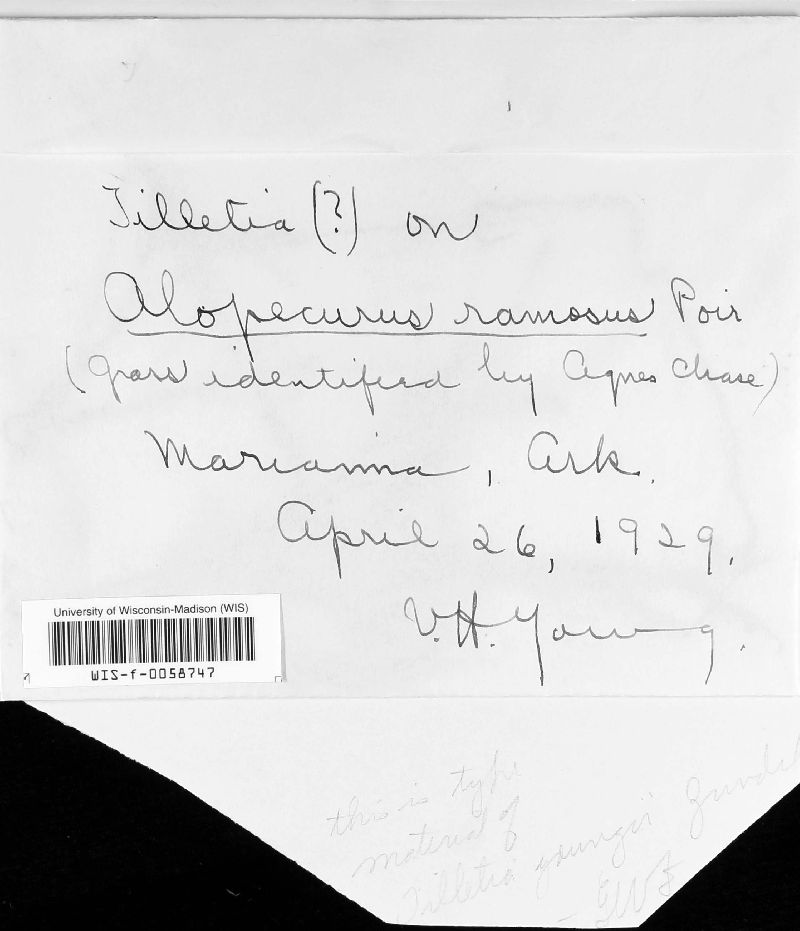 Tilletia (?) on
Alopecurus ramosus Poir
(grass identified by Agnes Chase)
Marianna, Ark.
April 26, 1929.
V.H. Young.
University of Wisconsin-Madison (WIS)
WIS-f-0058747
this is type
material of
Tilletia youngii Zundel
- GWF